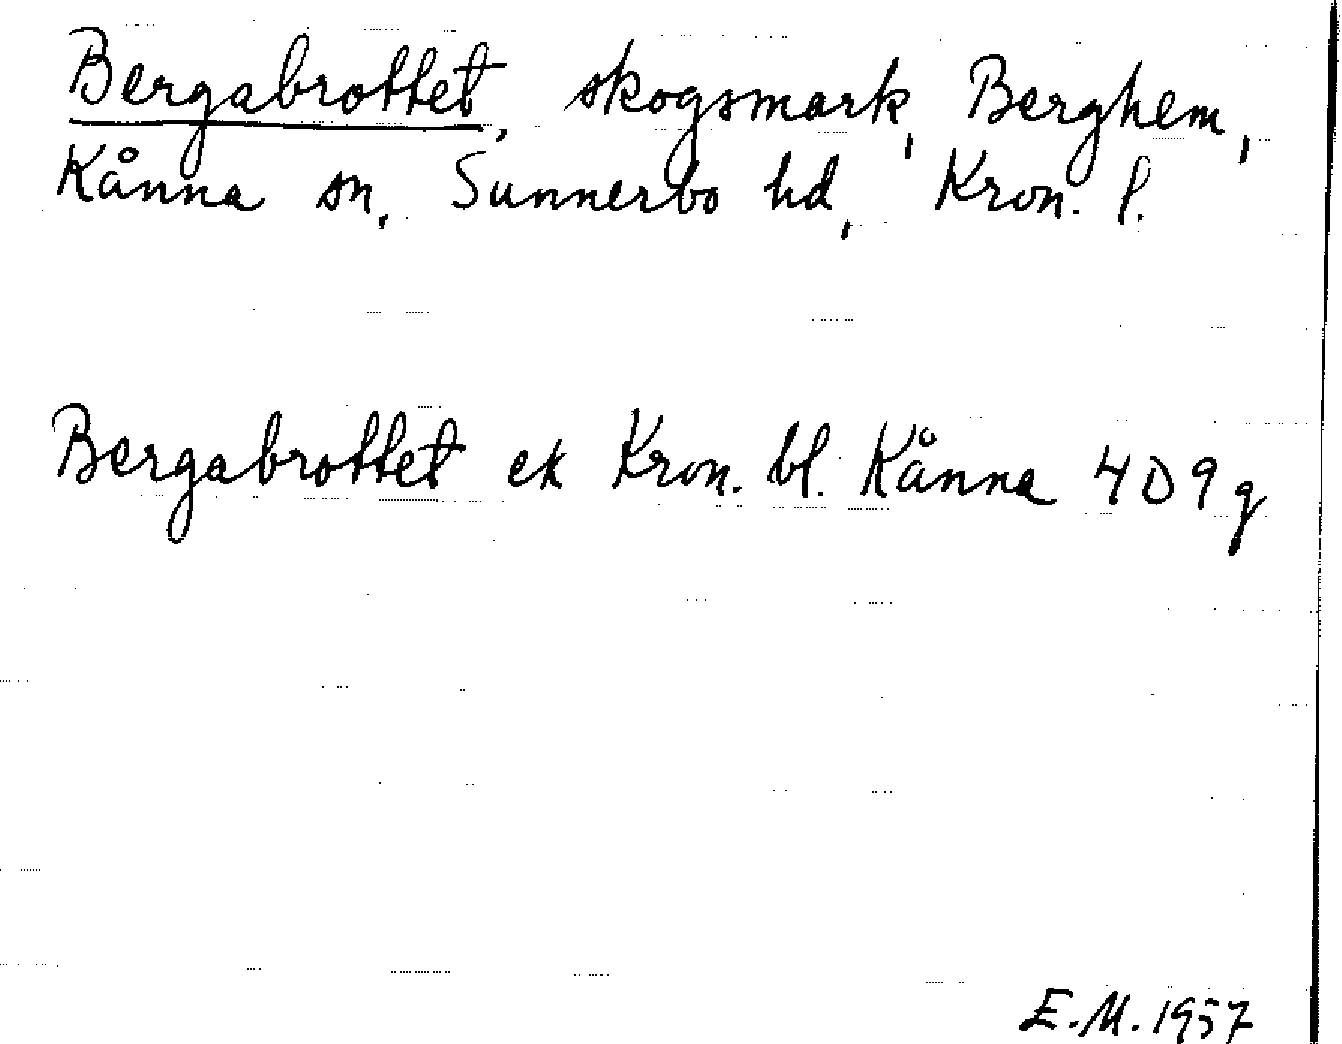 Bergabrottet, skogsmark, Berghem,
Kånna sn, Sunnerbo hd, Kron. l.
Bergabrottet ek Kron. bl. Kånna 4D9g
E.M. 1957